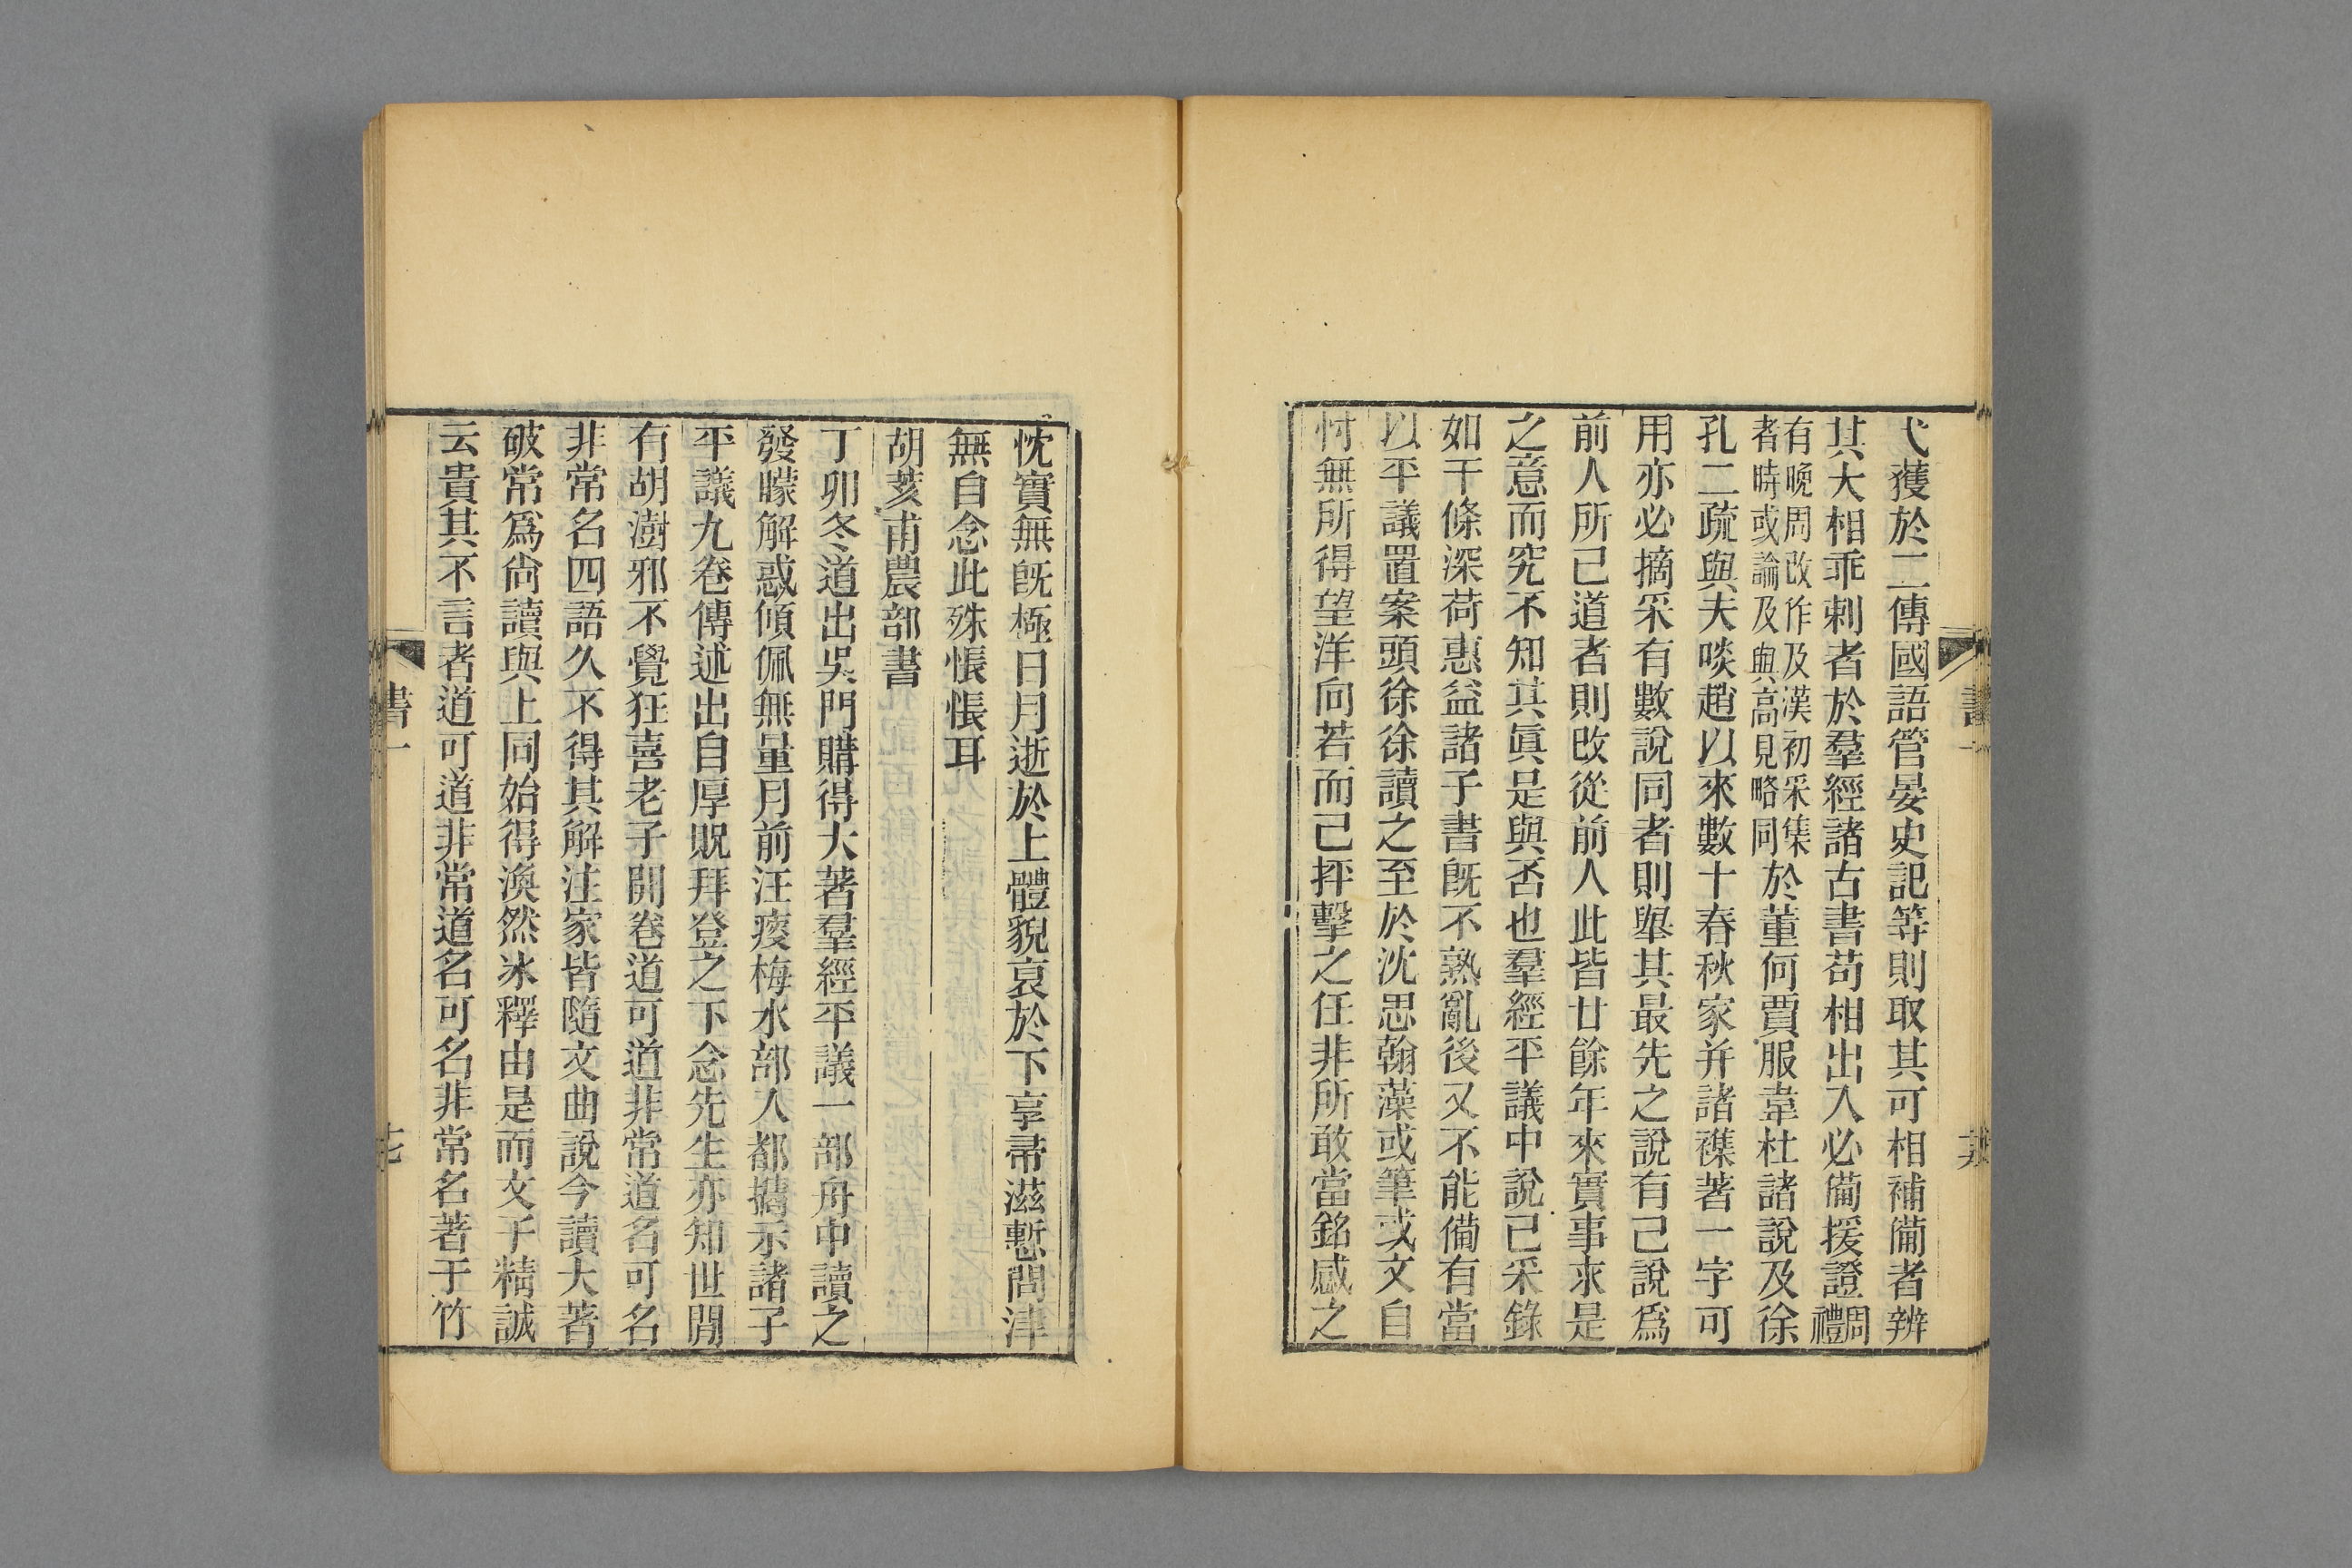 弋獲於二傳國語管晏史記等則取其可相補備者辨
其大相乖剌者於羣經諸古書苟相出入必備援證周禮
有晚周改作及漢初采集者時或論及與高見略同於董何賈服韋杜諸說及徐
孔二疏與夫啖趙以來數十春秋家并諸襍著一字可
用亦必摘采有數說同者則舉其最先之說有己說爲
前人所已道者則改從前人此皆廿餘年來實事求是
之意而究不知其眞是與否也羣經平議中說已采錄
如干條深荷惠益諸子書旣不熟亂後又不能備有當
以平議置案頭徐徐讀之至於沈思翰藻或筆或文自
忖無所得望洋向若而已抨擊之任非所敢當銘感之
忱實無旣極日月逝於上體貌衰於下享帚滋慙問津
無自念此殊悵悵耳
胡荄甫農部書
丁卯冬道出吳門購得大著羣經平議一部舟中讀之
發矇解惑傾佩無量月前汪瘦梅水部入都攜示諸子
平議九卷傳述出自厚貺拜登之下念先生亦知世閒
有胡澍邪不覺狂喜老子開卷道可道非常道名可名
非常名四語久不得其解注家皆隨文曲說今讀大著
破常爲尙讀與上同始得渙然冰釋由是而文子精誠
云貴其不言者道可道非常道名可名非常名著于竹
書一